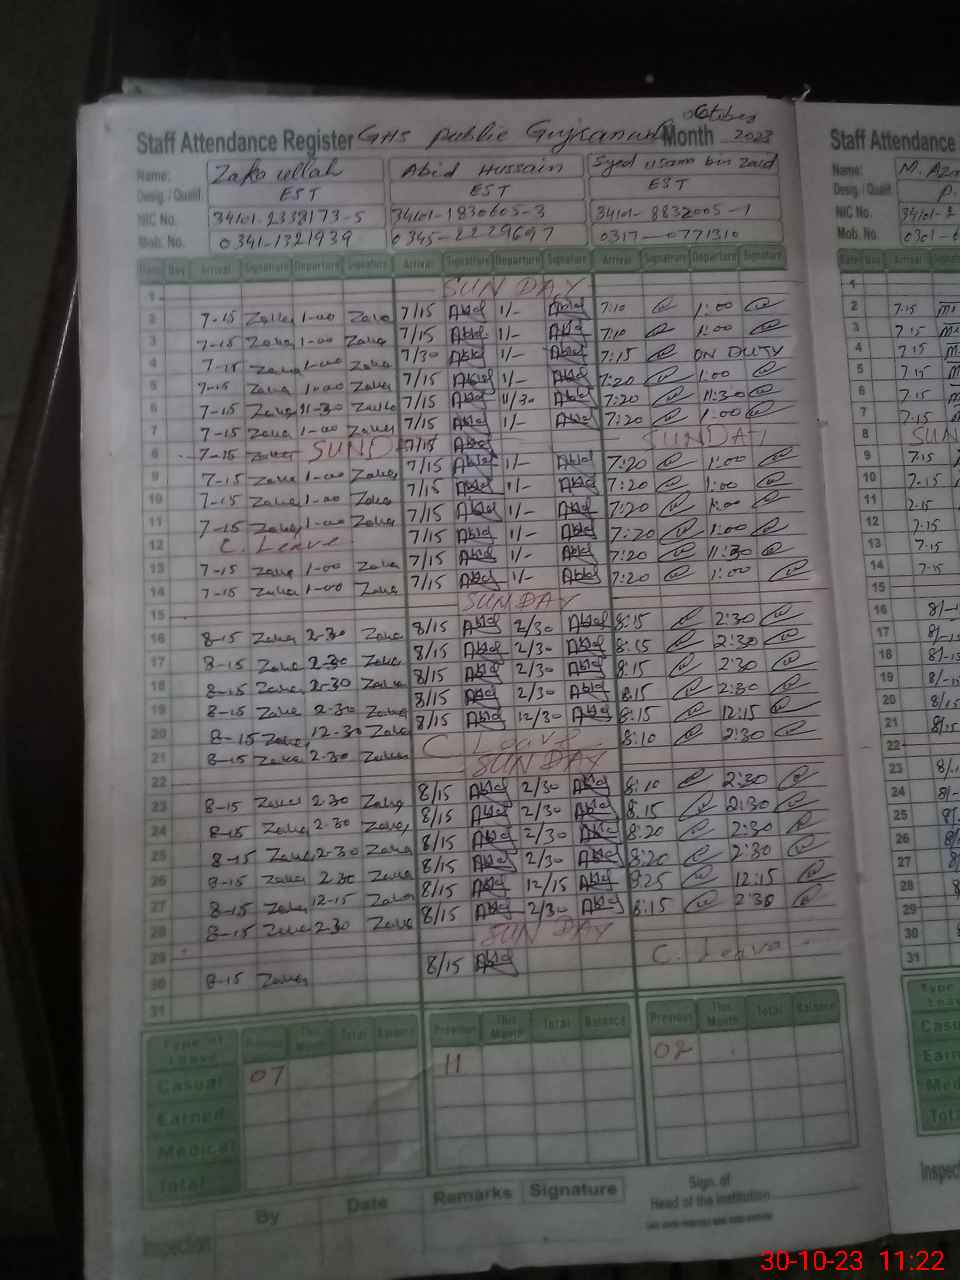 October
Staff Attendance Register GHS public Gujranwala Month 2023
Name: Zaka ullah Abid Hussain Syed usama bin Zaid
Desig. / Qualif. EST EST EST
NIC No. 34101-2338173-5 34101-1830605-3 34101-8832005-1
Mob. No. 0341-1321939 0345-2229697 0317-0771310
Date Day Arrival Signature Departure Signature Arrival Signature Departure Signature Arrival Signature Departure Signature
1 SUNDAY
2 7-15 Zaka 1-00 Zaka 7/15 Abid 1/- Abid 7:10 1:00
3 7-15 Zaka 1-00 Zaka 7/15 Abid 1/- Abid 7:10 1:00
4 7-15 Zaka 1-00 Zaka 7/30 Abid 1/- Abid 7:15 ON DUTY
5 7-15 Zaka 1-00 Zaka 7/15 Abid 1/- Abid 7:20 1:00
6 7-15 Zaka 11-30 Zaka 7/15 Abid 11/30 Abid 7:20 11:30
7 7-15 Zaka 1-00 Zaka 7/15 Abid 1/- Abid 7:20 1:00
8 7-15 Zaka SUND 7/15 Abid SUNDAY
9 7-15 Zaka 1-00 Zaka 7/15 Abid 1/- Abid 7:20 1:00
10 7-15 Zaka 1-00 Zaka 7/15 Abid 1/- Abid 7:20 1:00
11 7-15 Zaka 1-00 Zaka 7/15 Abid 1/- Abid 7:20 1:00
12 C. Leave 7/15 Abid 1/- Abid 7:20 1:00
13 7-15 Zaka 1-00 Zaka 7/15 Abid 1/- Abid 7:20 11:30
14 7-15 Zaka 1-00 Zaka 7/15 Abid 1/- Abid 7:20 1:00
15 SUNDAY
16 8-15 Zaka 2-30 Zaka 8/15 Abid 2/30 Abid 8:15 2:30
17 8-15 Zaka 2-30 Zaka 8/15 Abid 2/30 Abid 8:15 2:30
18 8-15 Zaka 2-30 Zaka 8/15 Abid 2/30 Abid 8:15 2:30
19 8-15 Zaka 2-30 Zaka 8/15 Abid 2/30 Abid 8:15 2:30
20 8-15 Zaka 12-30 Zaka 8/15 Abid 12/30 Abid 8:15 12:15
21 8-15 Zaka 2-30 Zaka C Leave 8:10 2:30
22 SUNDAY
23 8-15 Zaka 2-30 Zaka 8/15 Abid 2/30 Abid 8:10 2:30
24 8-15 Zaka 2-30 Zaka 8/15 Abid 2/30 Abid 8:15 2:30
25 8-15 Zaka 2-30 Zaka 8/15 Abid 2/30 Abid 8:20 2:30
26 8-15 Zaka 2-30 Zaka 8/15 Abid 2/30 Abid 8:20 2:30
27 8-15 Zaka 12-15 Zaka 8/15 Abid 12/15 Abid 8:25 12:15
28 8-15 Zaka 2-30 Zaka 8/15 Abid 2/30 Abid 8:15 2:30
29 SUNDAY
30 8-15 Zaka 8/15 Abid C. Leave
31
Type of Leave Previous This Month Total Balance Previous This Month Total Balance Previous This Month Total Balance
Casual 07 11 02
Earned
Medical
Total
By Date Remarks Signature
Inspection
Sign. of
Head of the institution
Staff Attendance
Name: M. Az
Desig. / Qualif.
NIC No. 34101-
Mob. No. 0301-
Date Day Arrival
1
2 7.15
3 7.15
4 7.15
5 7.15
6 7.15
7 7.15
8 SUN
9 7.15
10 7.15
11 7.15
12 7.15
13 7.15
14 7.15
15
16 8/-1
17 8/-15
18 8/-15
19 8/-15
20 8/15
21 8/15
22
23 8/
24 8/-
25 8/
26 8/
27 8/
28
29
30
31
Type Leave
30-10-23 11:22